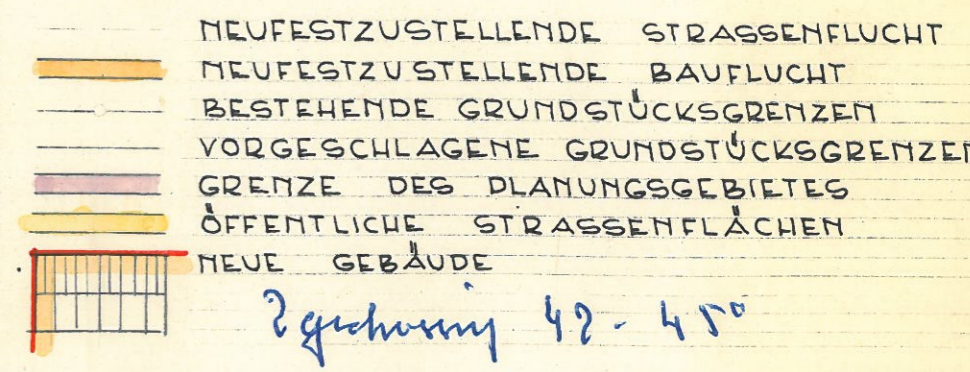 NEUFESTZUSTELLENDE STRASSENFLUCHT
NEUFESTZUSTELLENDE BAUFLUCHT
BESTEHENDE GRUNDSTÜCKSGRENZEN
VORGESCHLAGENE GRUNDSTÜCKSGRENZEN
GRENZE DES PLANUNGSGEBIETES
ÖFFENTLICHE STRASSENFLÄCHEN
NEUE GEBÄUDE
2 geschossig 42 - 45°